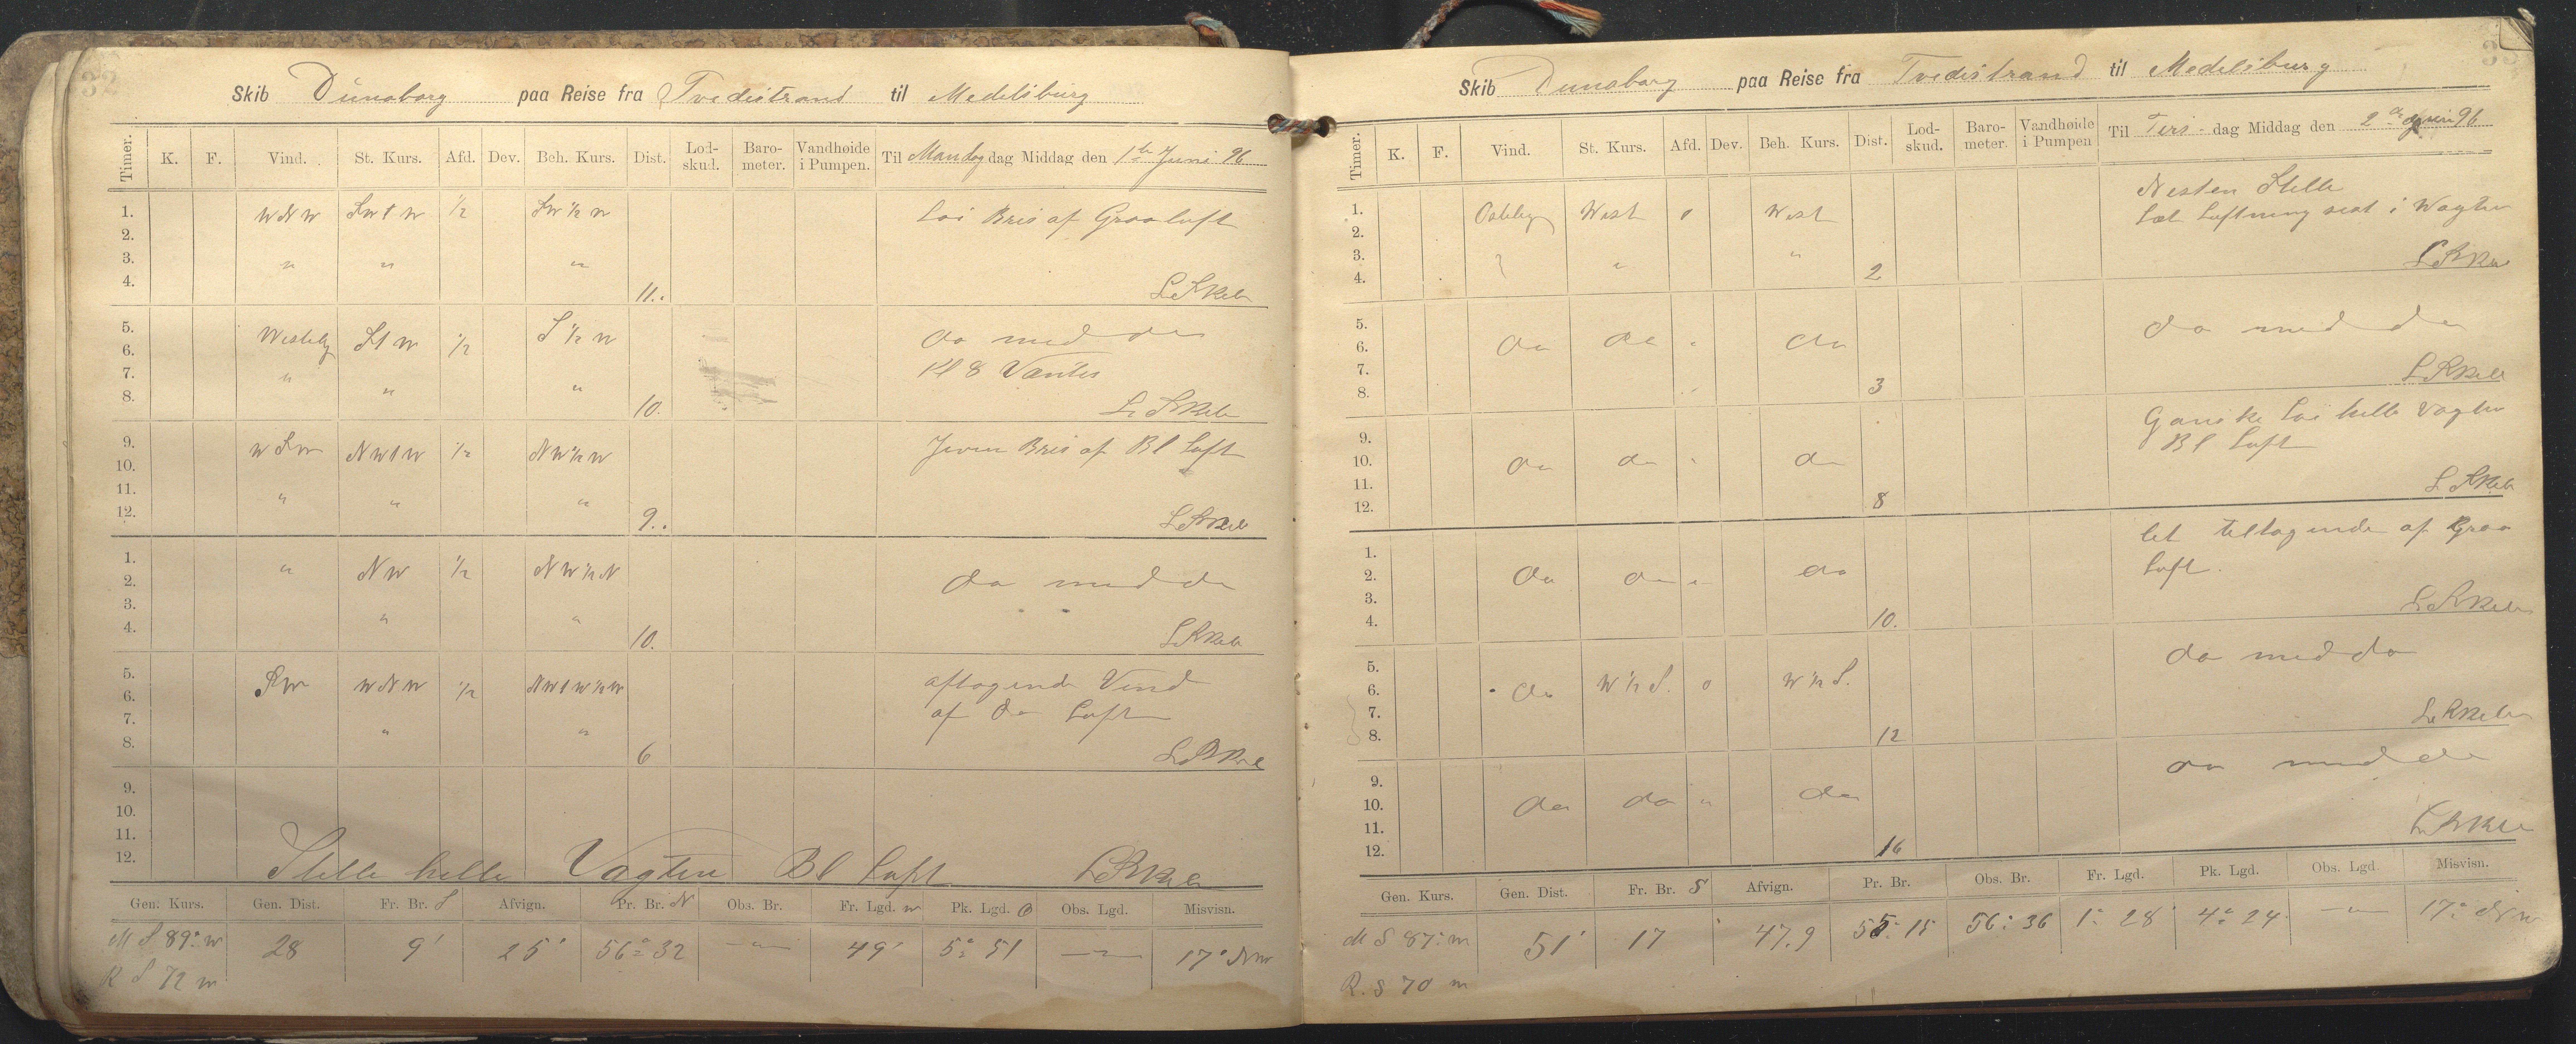 32
Skib Dünaborg paa Reise fra Tvedestrand til Medelsburg
Timer. K. F. Vind. St. Kurs. Afd. Dev. Beh. Kurs. Dist. Lod-skud. Baro-meter. Vandhøide i Pumpen. Til Mandag dag Middag den 1te Juni 96
1. WNW SWtW 1/2 SW 1/2 W Løi Bris af Graaluft
2.
3. " " "
4. 11.
5. Westelig StW 1/2 S 1/2 W do med do
6.
7. " " " Kl 8 Vendte
8. 10.
9. WSW NWtW 1/2 NW 1/2 W Jevn Bris af Bl Luft
10.
11. " " "
12. 9.
1. " NW 1/2 NW 1/2 N do med do
2.
3. " "
4. 10.
5. SW WNW 1/2 NWtW 1/2 W aftagende Vind
6. af do Luft
7. " "
8. 6
9.
10.
11.
12. Stille helle Vagten Bl Luft
Gen. Kurs. Gen. Dist. Fr. Br. S Afvign. Pr. Br. N Obs. Br. Fr. Lgd. W Pk. Lgd. O Obs. Lgd. Misvisn.
M S 89° W 28 9' 25' 56° 32 — 49' 5° 51 — 17° NW
R S 72 W
Skib Dunaborg paa Reise fra Tvedestrand til Medelsburg
Timer. K. F. Vind. St. Kurs. Afd. Dev. Beh. Kurs. Dist. Lod-skud. Baro-meter. Vandhøide i Pumpen Til Tirs- dag Middag den 2 Juni 96
Nesten Stille
1. Ostelig West 0 West Let Luftning sist i Wagten
2.
3. " "
4. 2
5. do med do
6. do do " do
7.
8. 3
Ganske Løi helle Vagten
9. Bl Luft
10. do do " do
11.
12. 8
let tiltagende af Graa
1. Luft.
2. do do " do
3.
4. 10.
5. do med do
6. do W 1/2 S. 0 W 1/2 S.
7.
8. 12
9. do med do
10. do do " do
11.
12. 16
Gen. Kurs. Gen. Dist. Fr. Br. S Afvign. Pr. Br. Obs. Br. Fr. Lgd. Pk. Lgd. Obs. Lgd. Misvisn.
M S 87° W 51' 17 47.9 55° 15 56° 36 1° 28 4° 24 — 17° NW
R. S 70 W